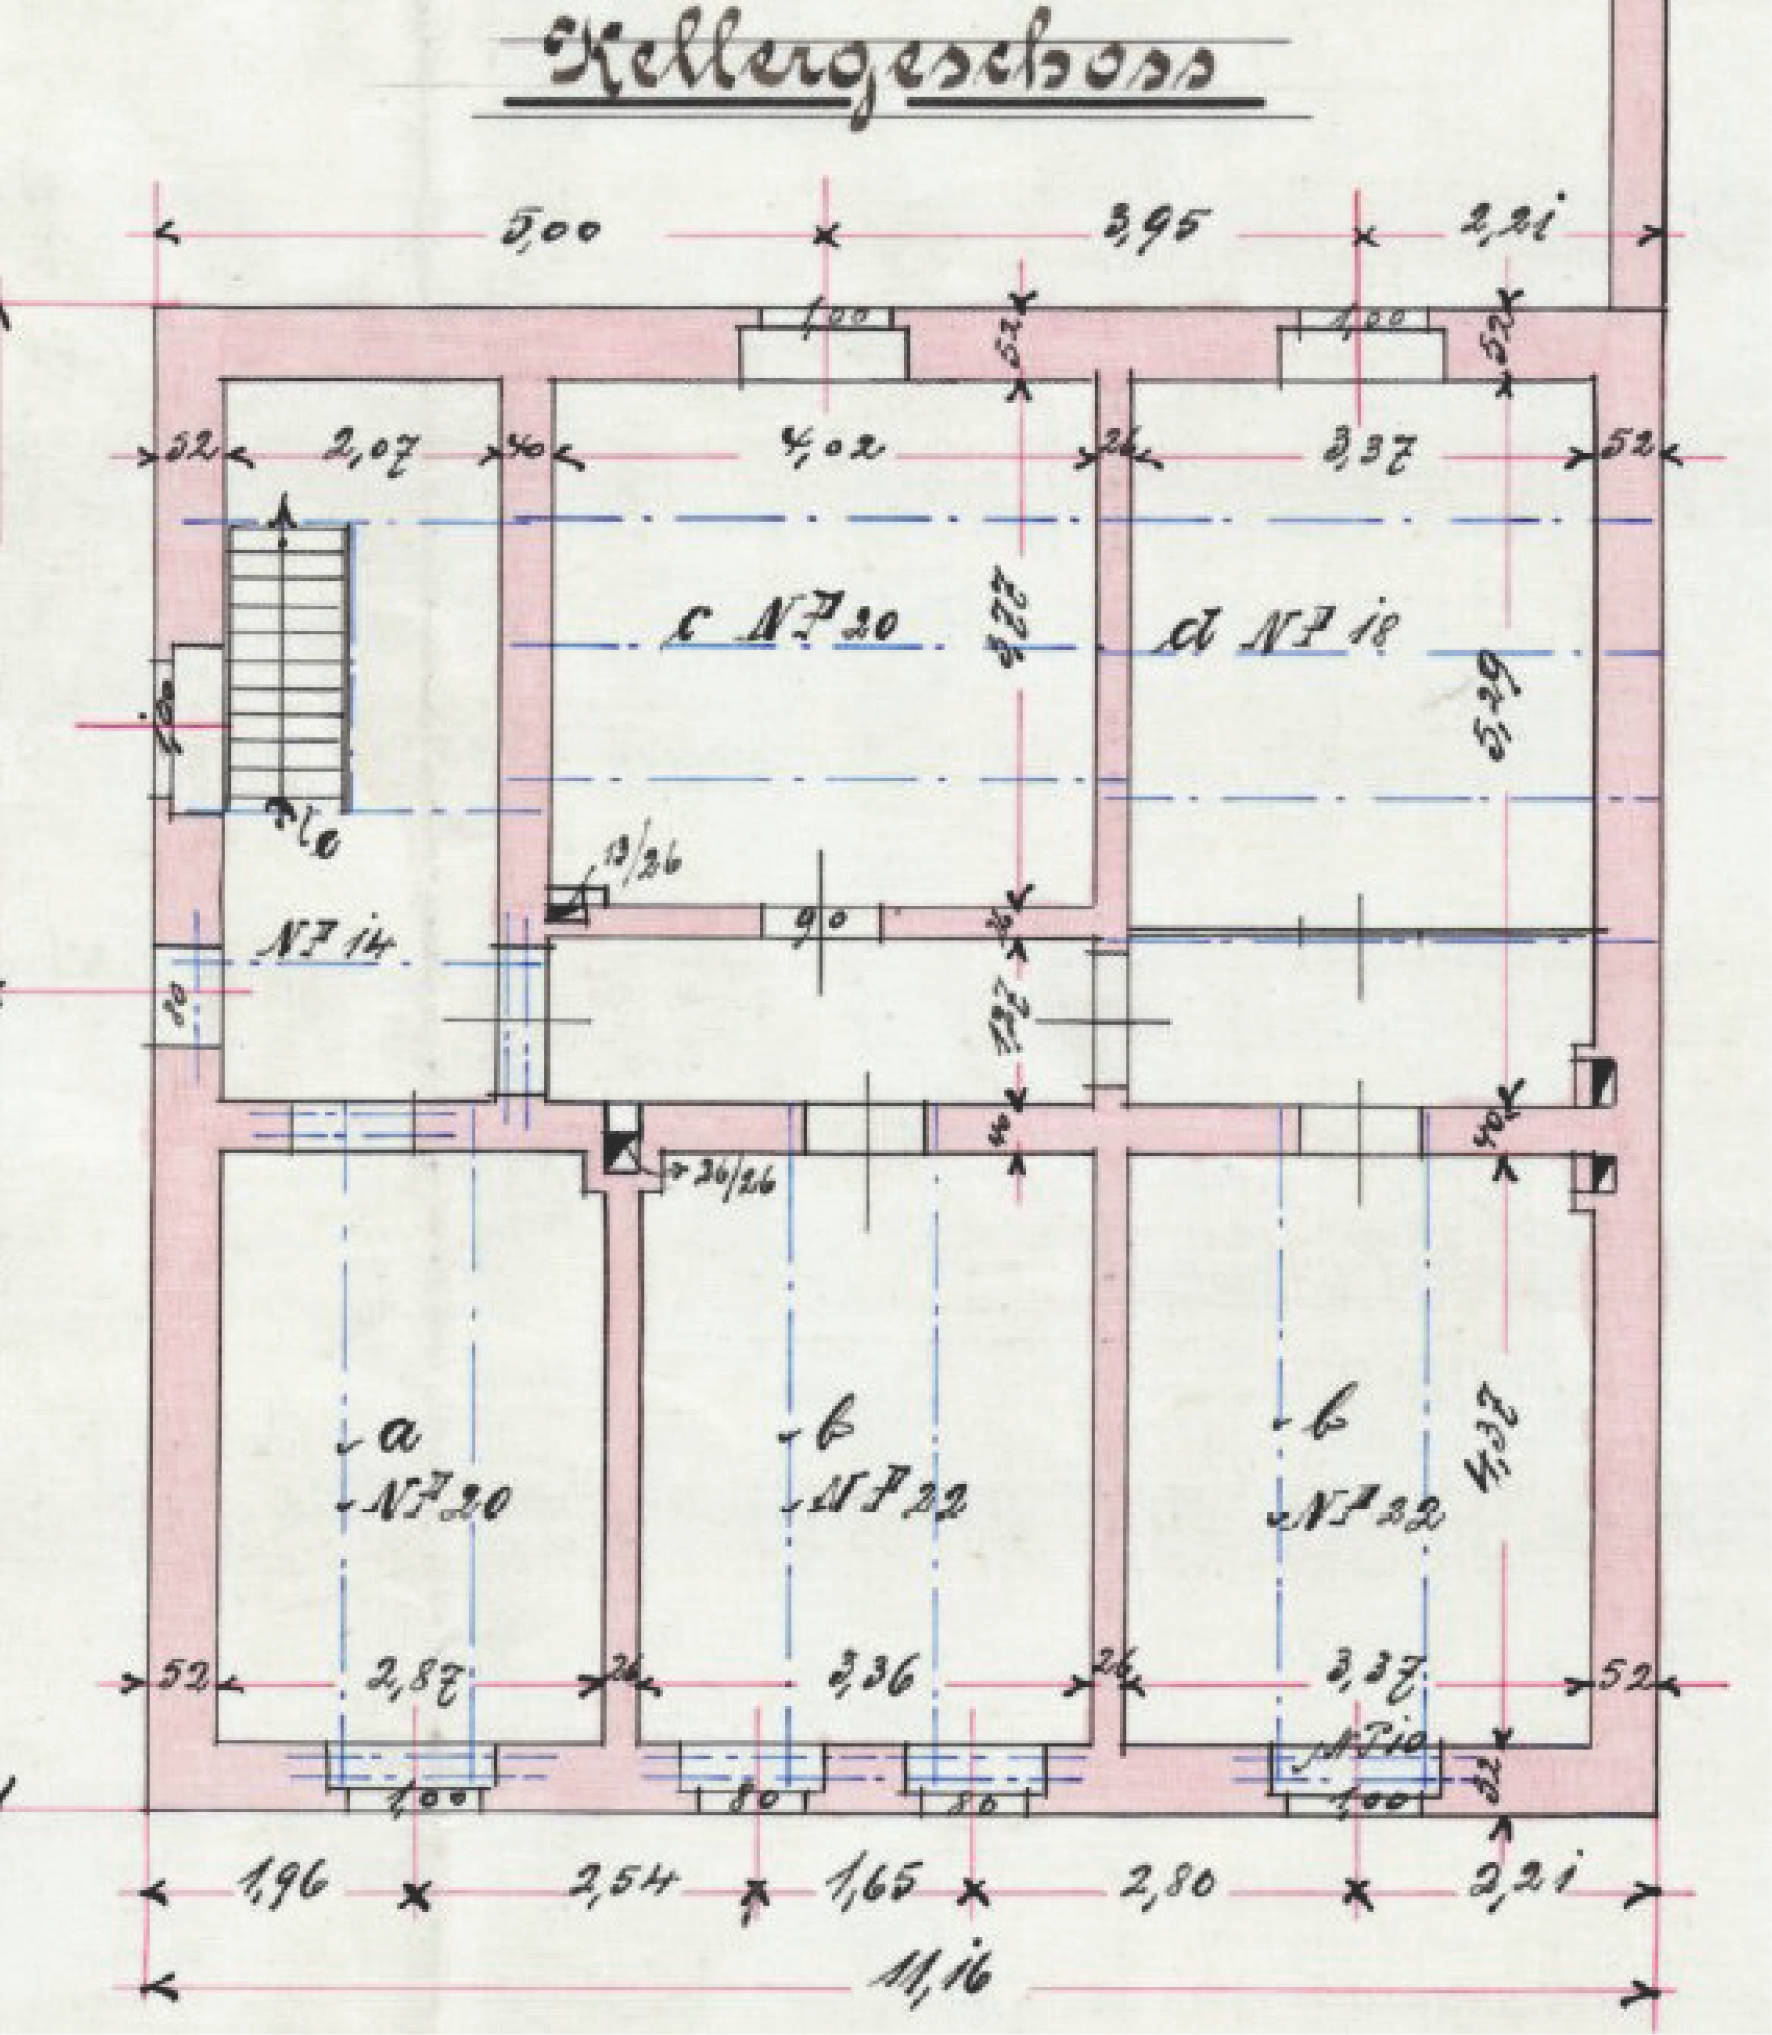 Kellergeschoss
5,00 3,95 2,21
1,00 1,00
52 52
52 2,07 40 4,02 26 3,37 52
c NP 20
d NP 18
3,77
5,29
1,00
e
13/26
NP 14
90
26
80
1,27
40 40
26/26
a
NP 20
b
NP 22
b
NP 22
4,37
52 2,87 26 3,36 26 3,37 52
NP 10
52
1,00 80 80 1,00
1,96 2,54 1,65 2,80 2,21
11,16